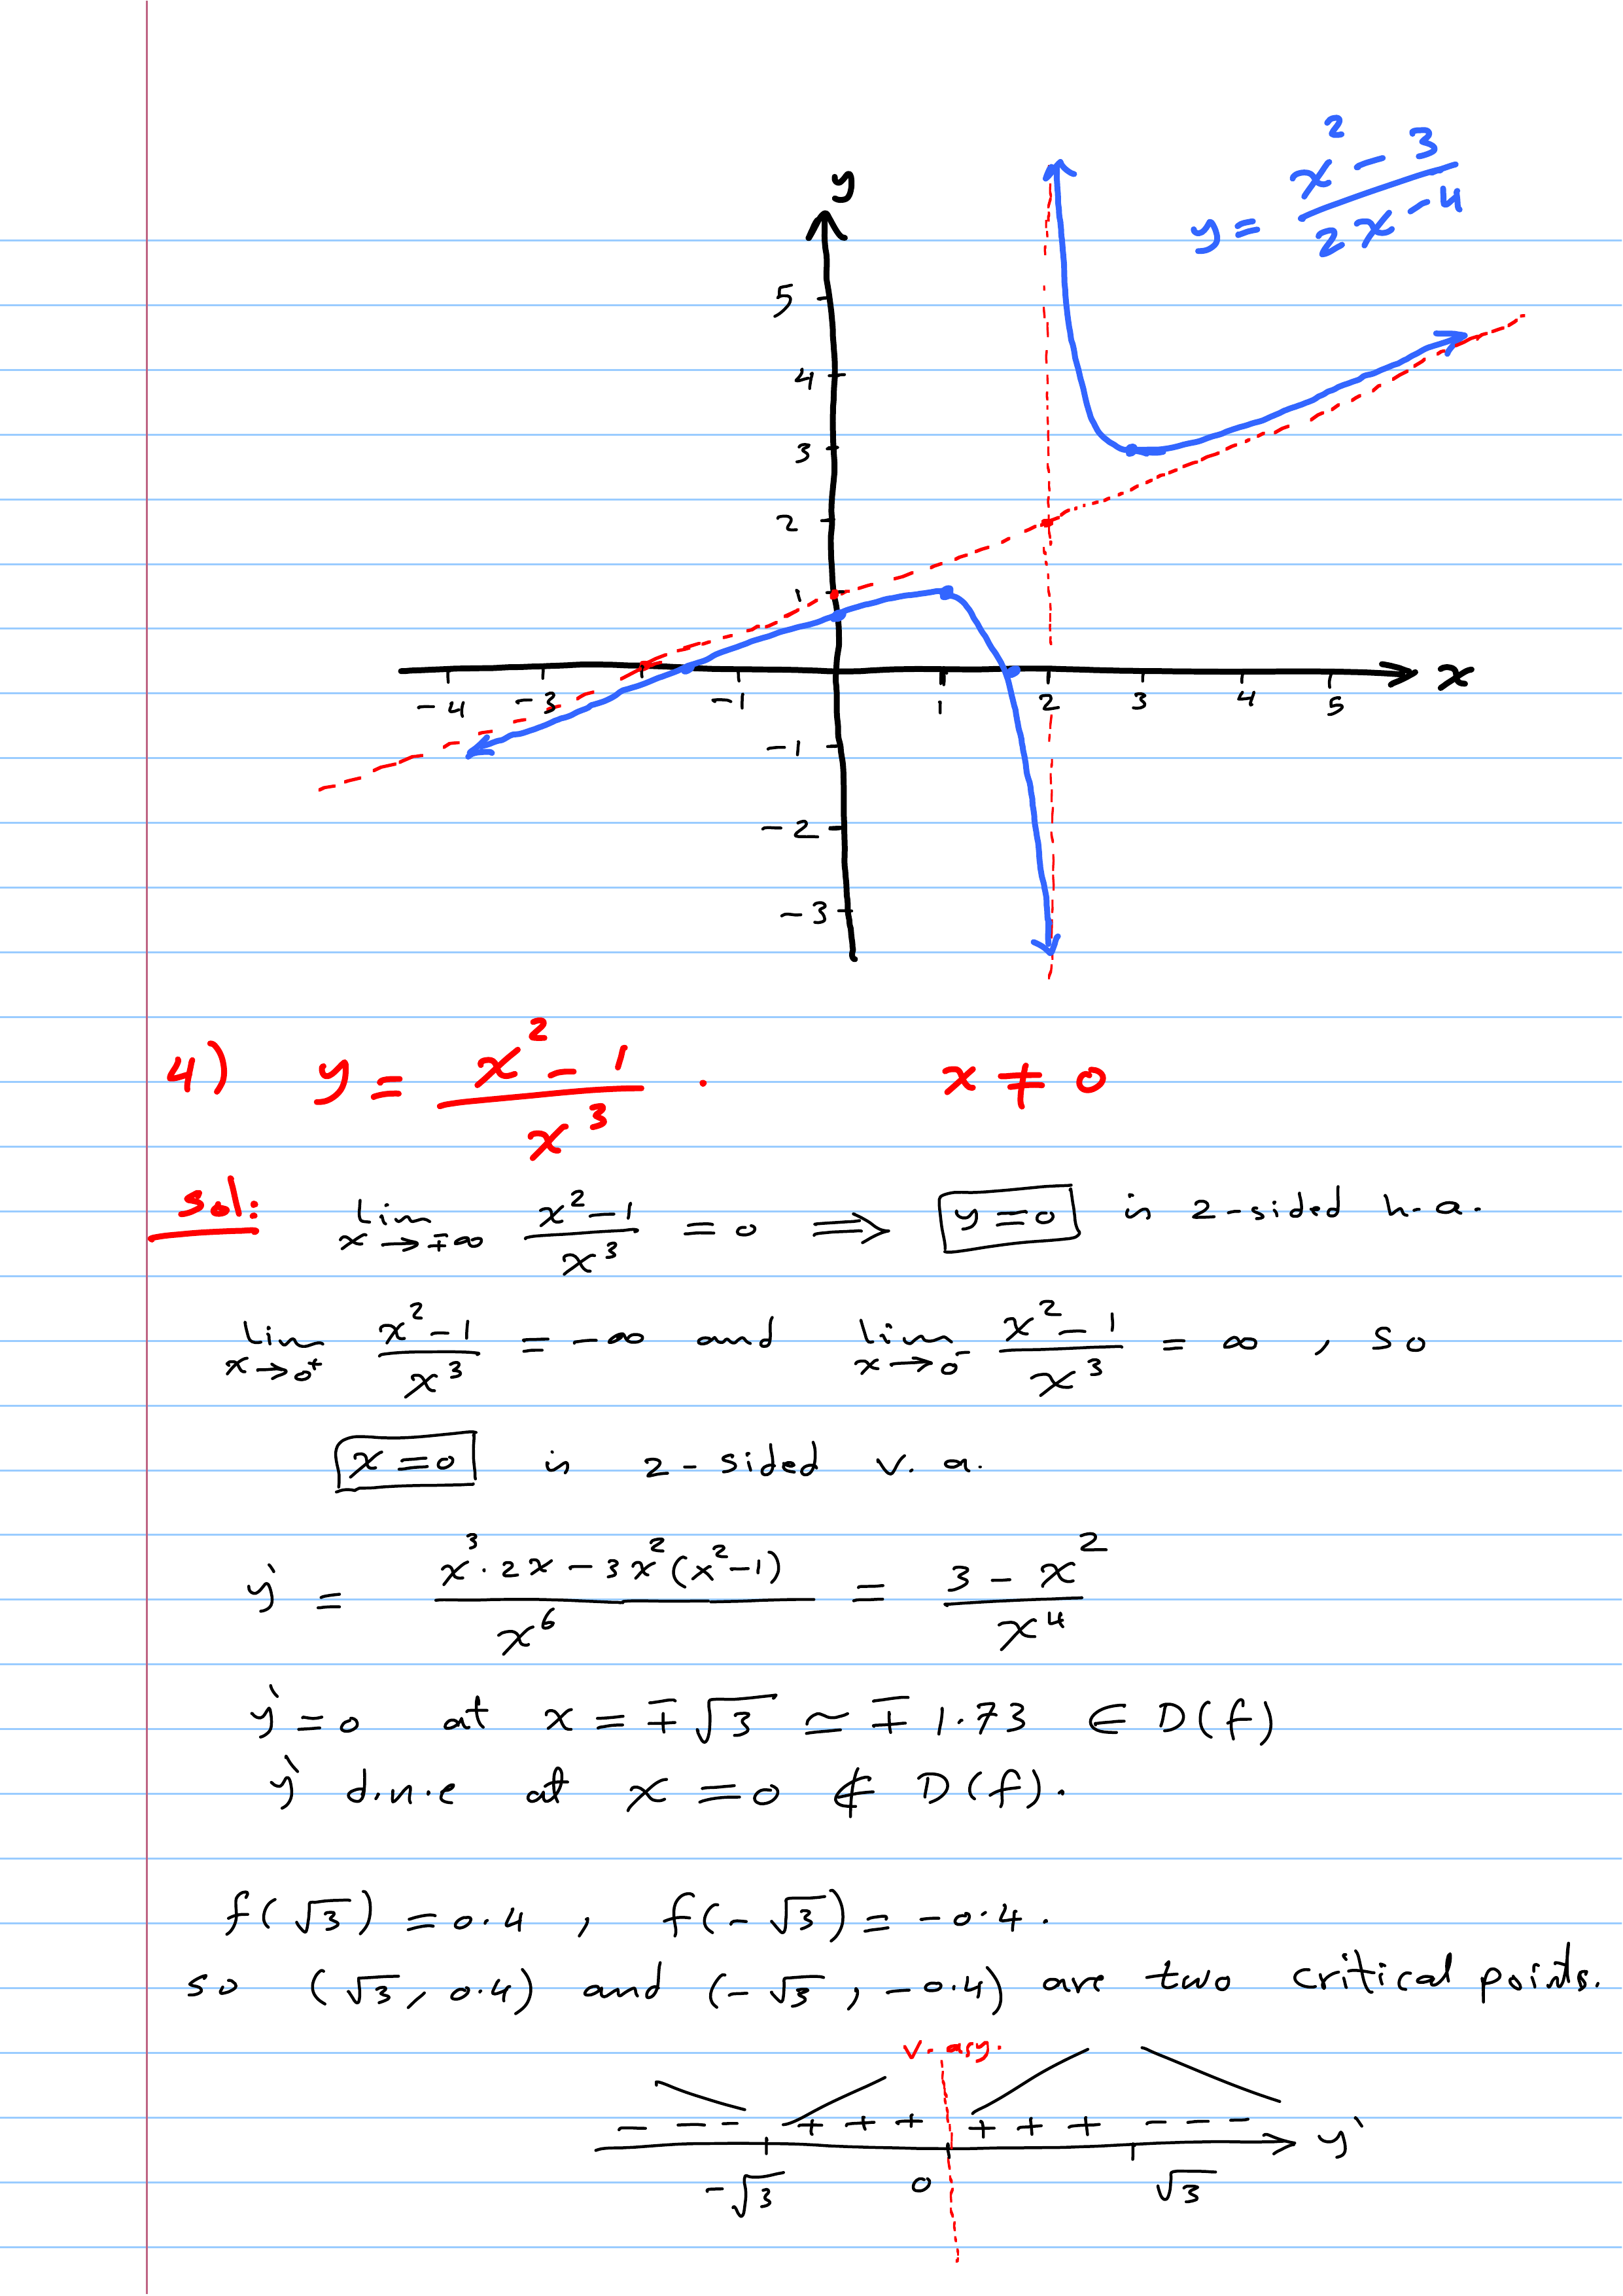 y = (x² - 3)/(2x - 4)
y
5
4
3
2
1
-4 -3 -1 1 2 3 4 5 x
-1
-2
-3
4) y = (x² - 1)/x³ . x ≠ 0
sol: Lim x→∓∞ (x² - 1)/x³ = 0 ⟹ y = 0 is 2-sided h.a.
Lim x→0⁺ (x² - 1)/x³ = -∞ and Lim x→0⁻ (x² - 1)/x³ = ∞ , so
x = 0 is 2-sided v.a.
y' = (x³·2x - 3x²(x² - 1))/x⁶ = (3 - x²)/x⁴
y' = 0 at x = ∓√3 ≃ ∓1.73 ∈ D(f)
y' d.n.e at x = 0 ∉ D(f).
f(√3) = 0.4 , f(-√3) = -0.4.
so (√3, 0.4) and (-√3, -0.4) are two critical points.
v. asy.
- - - + + + + + + - - - y'
-√3 0 √3